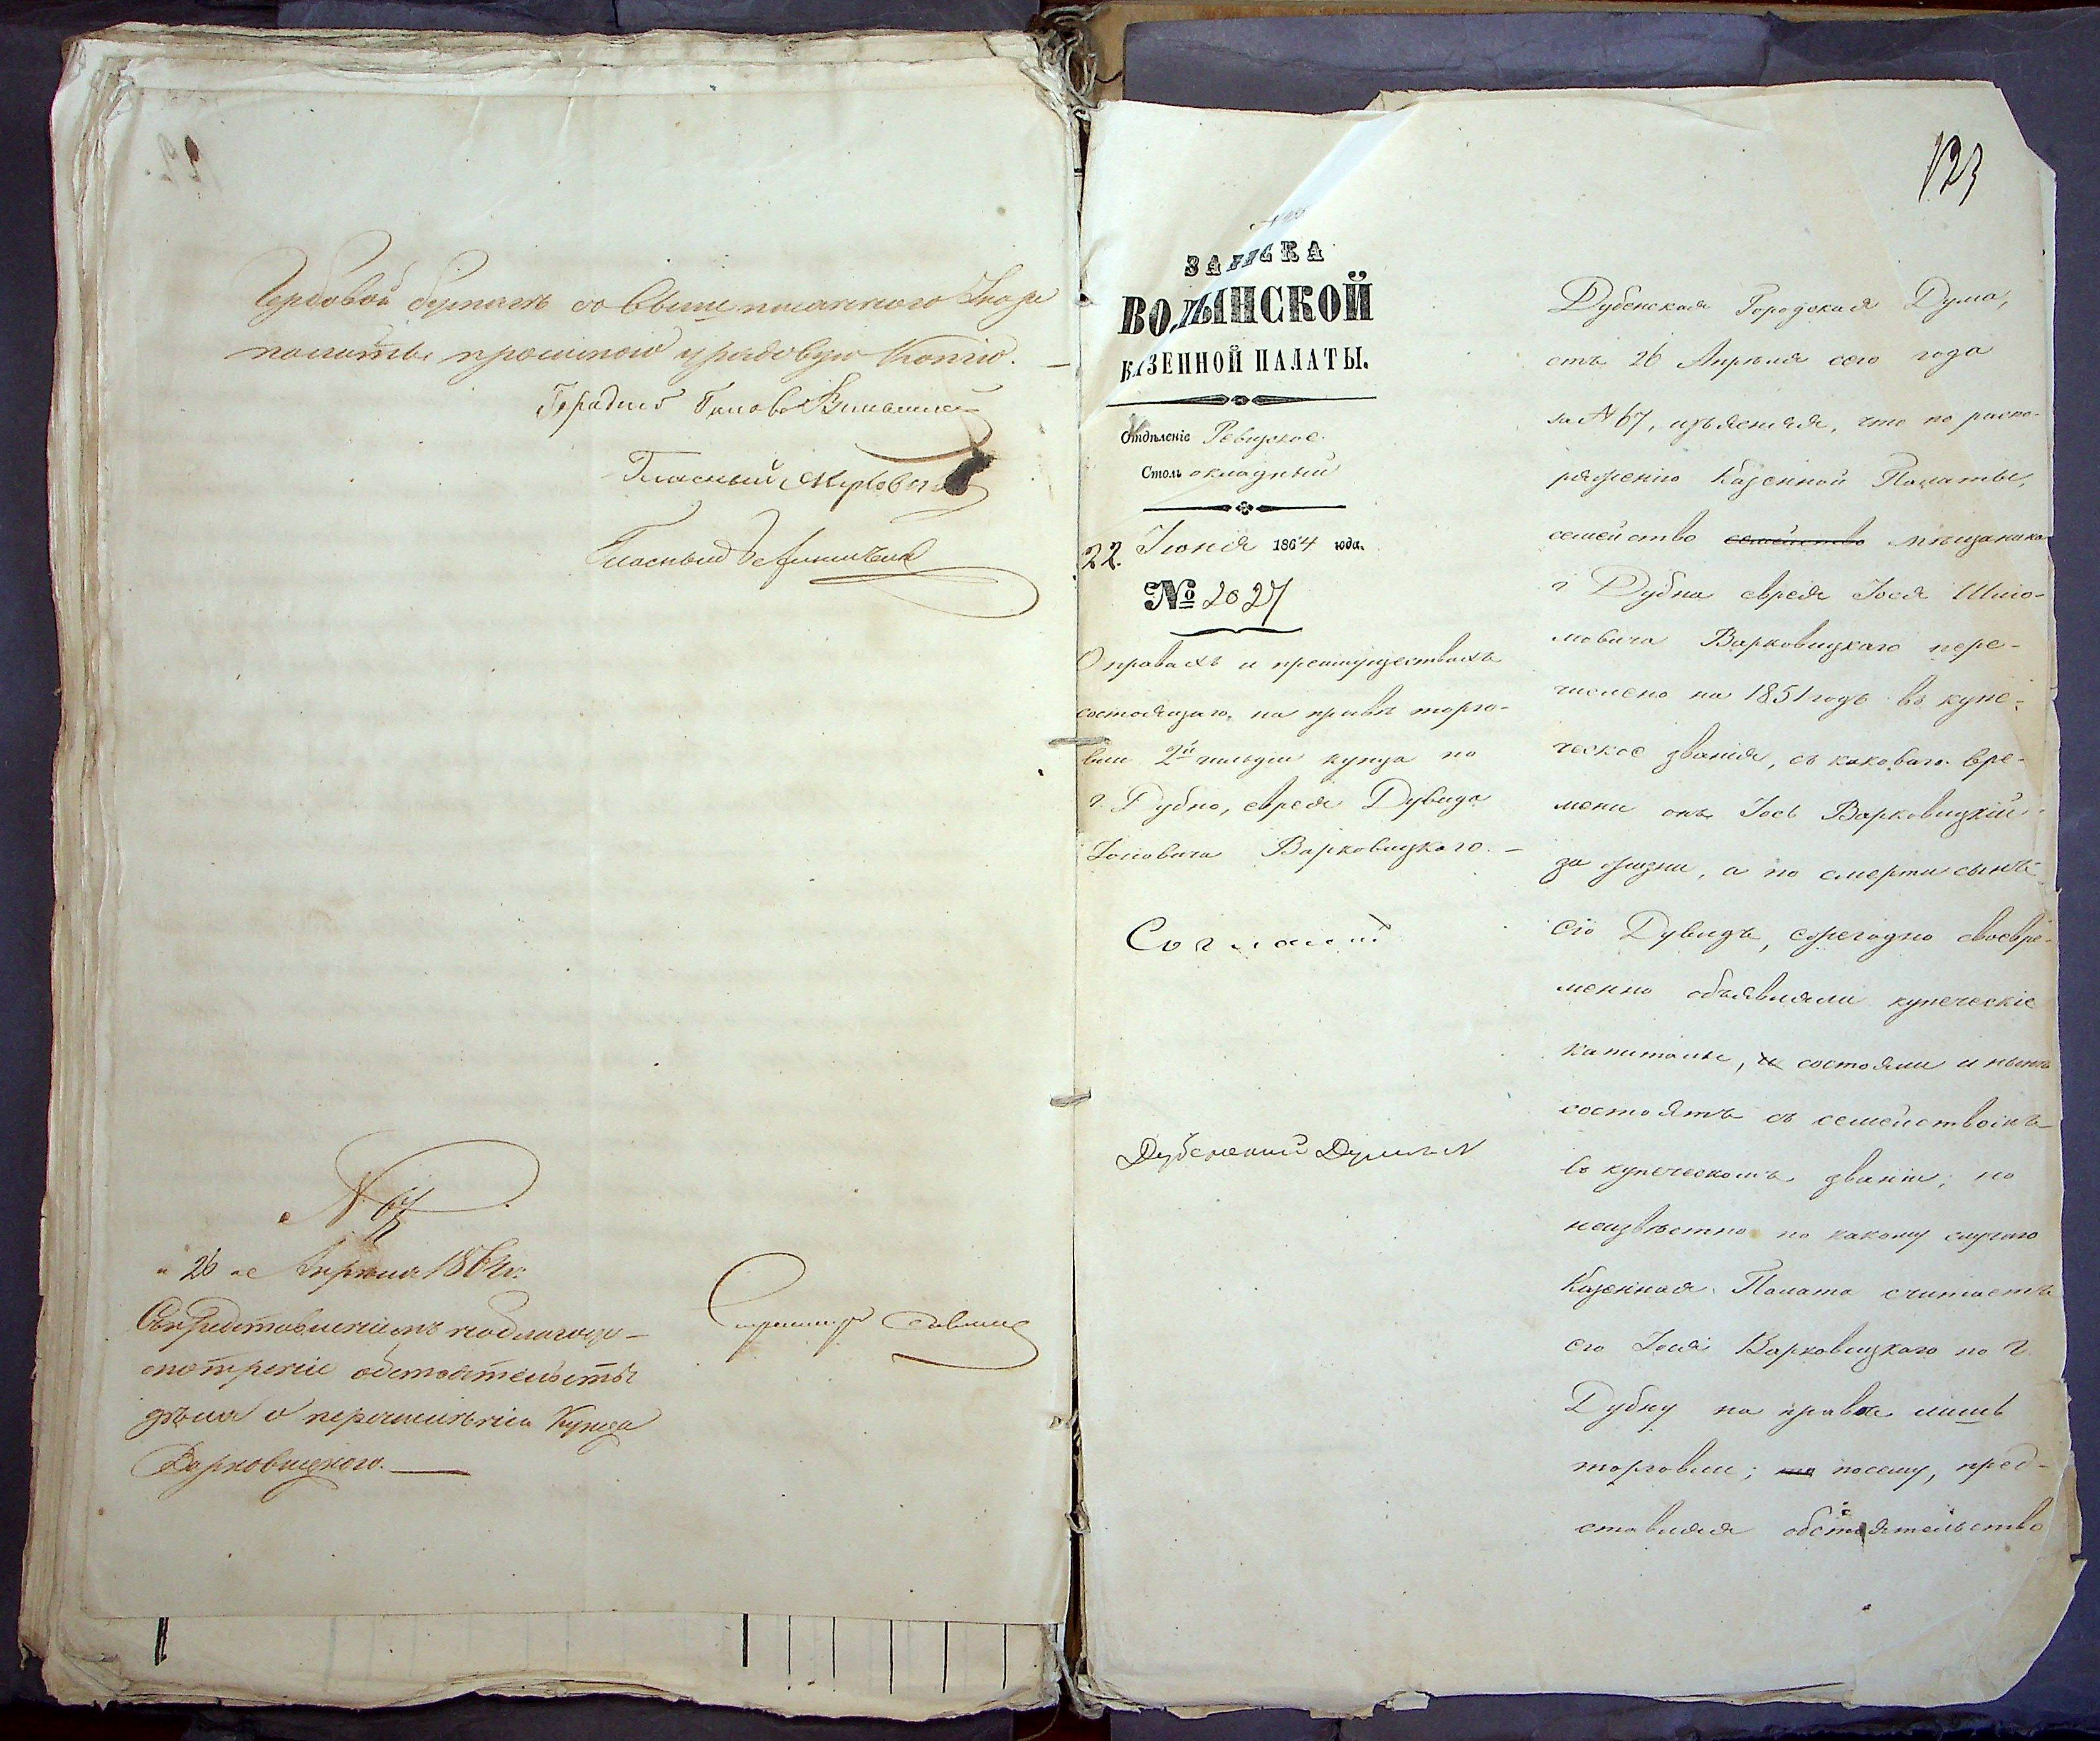 Гербовой бумагъ со Свыше писанного
Городской Голова
Гласный
Гласный
№ 67
„ 26 „ Апрѣля 1864 г:
Съ Представленіемъ на благоу-
смотреніе обстоятельствъ
дѣла о перечисленіи Купца
Варковицкого. —
123
ЗАПИСКА
ВОЛЫНСКОЙ
КАЗЕННОЙ ПАЛАТЫ.
Отдѣленіе Ревизское.
Столъ окладный
22. Іюня 1864 года.
№ 2027
О правахъ и преимуществахъ
состоящаго, на правѣ торго-
вли 2й гильдіи купца по
г. Дубно, еврея Дувида
Іосіовича Варковицкаго. —
Дубенской Думѣ
Дубенская Городская Дума,
отъ 26 Апрѣля сего года
за № 67, изъясняя, что по распо-
ряженію Казенной Палаты,
семейство семейство мѣщанина
г Дубна еврея Іося Шліо-
мовича Варковицкаго пере-
числено на 1851 годъ въ купе-
ческое званія, съ каковаго вре-
мени онъ Іось Варковицкій
за жизни, а по смерти сынъ
его Дувидъ, ежегодно своевре-
менно объявляли купеческіе
капиталы, и состояли и нынѣ
состоятъ съ семействомъ
въ купеческомъ званіи; но
неизвѣстно по какому случаю
Казенная Палата считаетъ
его Іося Варковицкаго по г.
Дубну на правѣ лишь
торговли; посему, пред-
ставляя обстоятельство